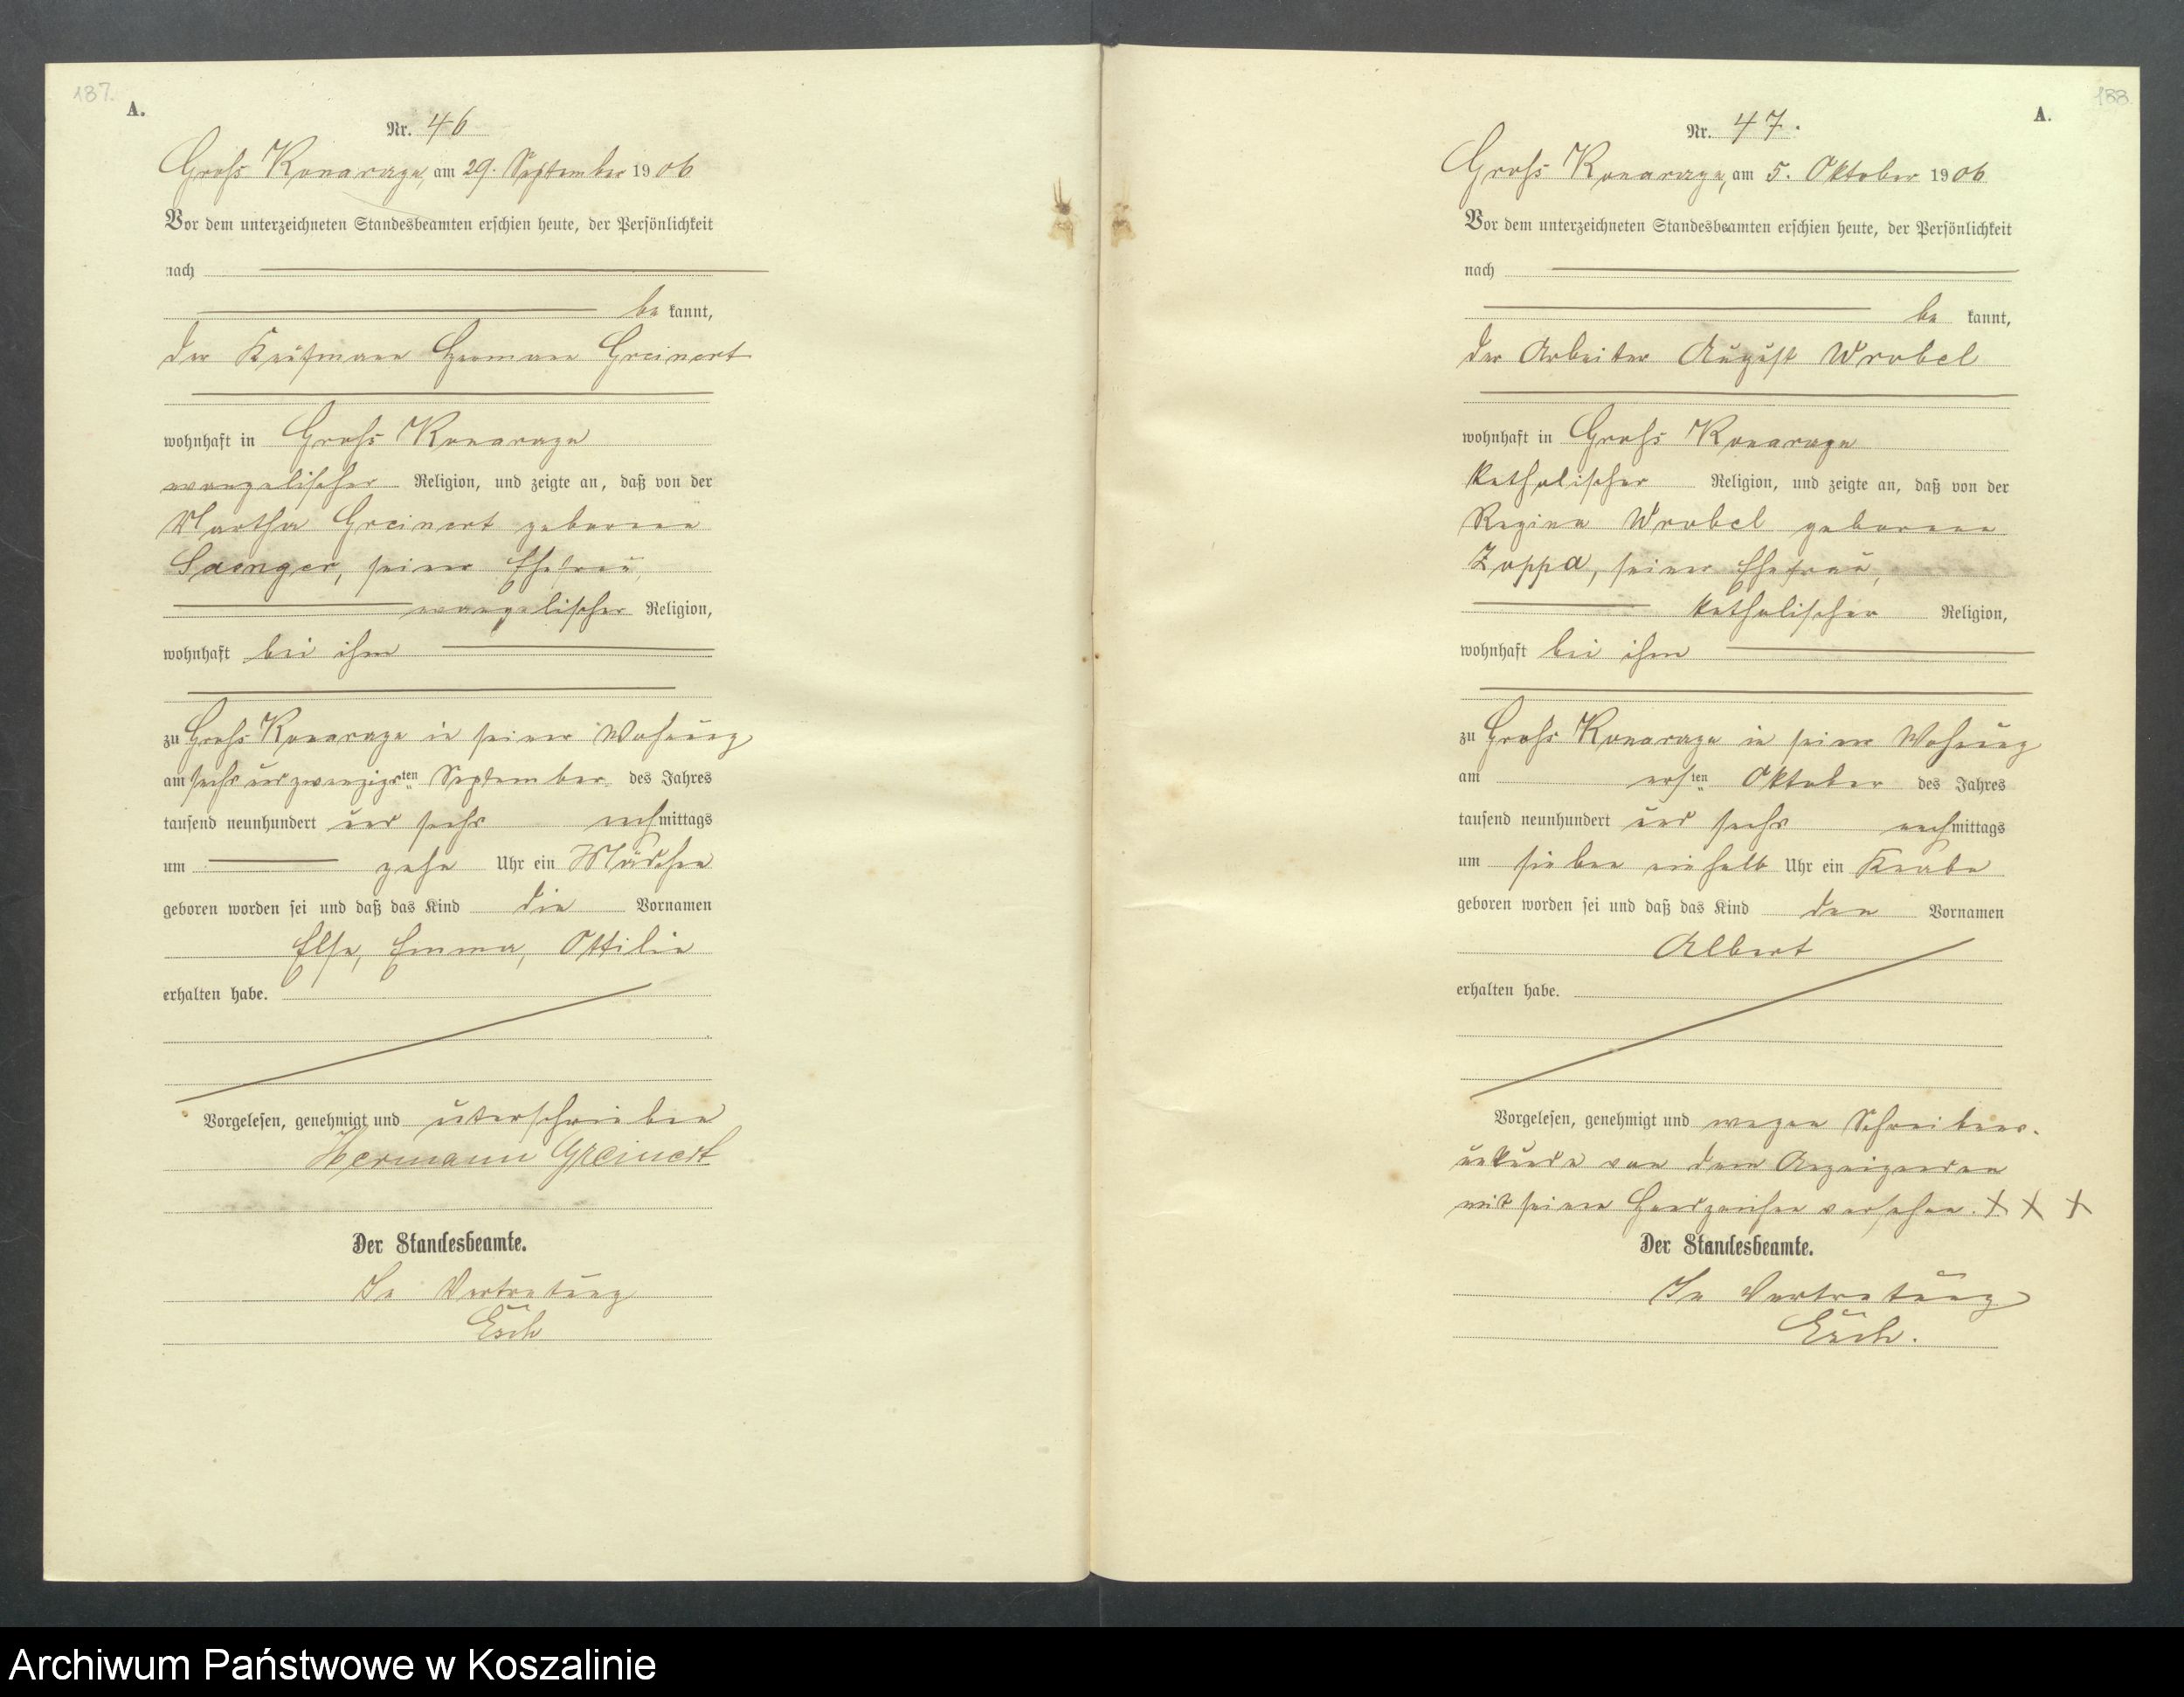 187.
A.
Nr. 46
Groß Konarczyn, am 29. September 1906
Vor dem unterzeichneten Standesbeamten erschien heute, der Persönlichkeit
nach
be kannt,
der Kaufmann Hermann Greinert
wohnhaft in Groß Konarczyn
evangelischer Religion, und zeigte an, daß von der
Martha Greinert geborene
Saenger, seiner Ehefrau,
evangelischer Religion,
wohnhaft bei ihm
zu Groß Konarczyn in seiner Wohnung
am sechsundzwanzigsten September des Jahres
tausend neunhundert und sechs nachmittags
um zehn Uhr ein Mädchen
geboren worden sei und daß das Kind die Vornamen
Else, Emma, Ottilie
erhalten habe.
Vorgelesen, genehmigt und unterschrieben
Hermann Greinert
Der Standesbeamte.
In Vertretung
188.
A.
Nr. 47.
Groß Konarczyn, am 5. Oktober 1906
Vor dem unterzeichneten Standesbeamten erschien heute, der Persönlichkeit
nach
be kannt,
der Arbeiter August Wrobel
wohnhaft in Groß Konarczyn
katholischer Religion, und zeigte an, daß von der
Regina Wrobel geborene
Zoppa, seiner Ehefrau,
katholischer Religion,
wohnhaft bei ihm
zu Groß Konarczyn in seiner Wohnung
am ersten Oktober des Jahres
tausend neunhundert und sechs nachmittags
um sieben einhalb Uhr ein Knabe
geboren worden sei und daß das Kind den Vornamen
Albert
erhalten habe.
Vorgelesen, genehmigt und wegen Schreibens-
unkunde von dem Anzeigenden
mit seinen Handzeichen versehen. X X X
Der Standesbeamte.
In Vertretung
Archiwum Państwowe w Koszalinie